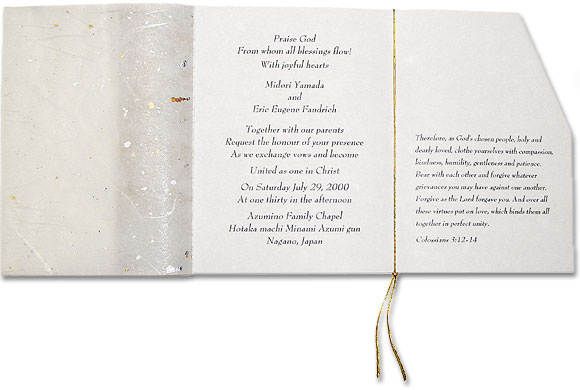 Praise God
From whom all blessings flow!
With joyful hearts
Midori Yamada
and
Eric Eugene Fandrich
Together with our parents
Request the honour of your presence
As we exchange vows and become
United as one in Christ
On Saturday July 29, 2000
At one thirty in the afternoon
Azumino Family Chapel
Hotaka machi Minami Azumi gun
Nagano, Japan
Therefore, as God's chosen people, holy and
dearly loved, clothe yourselves with compassion,
kindness, humility, gentleness and patience.
Bear with each other and forgive whatever
grievances you may have against one another.
Forgive as the Lord forgave you. And over all
these virtues put on love, which binds them all
together in perfect unity.
Colossians 3:12-14